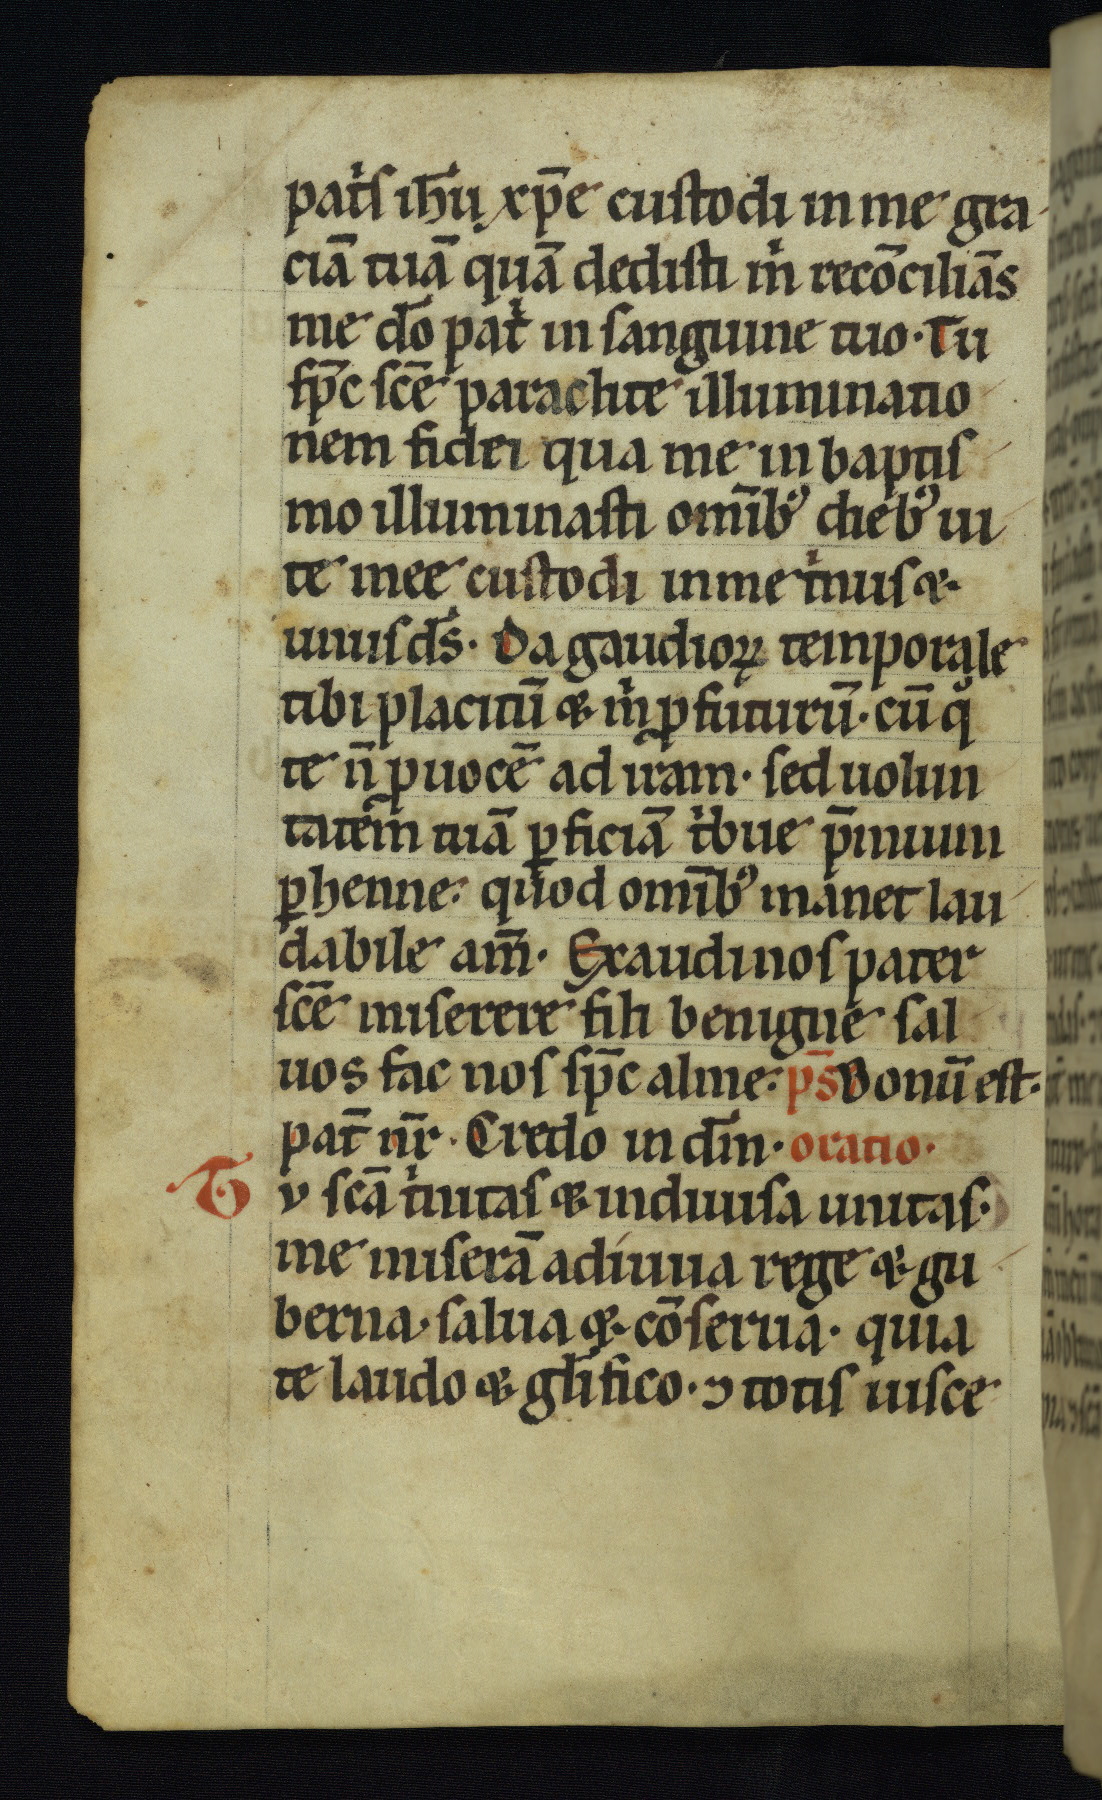 pat͛s ih̅u xp̅e custodi in me gra
ciā tuā quā dedisti m̍ recōciliās
me do̅ pat͛ in sanguine tuo. Tu
sp̅c sc̅e paraclite illuminatio
nem fidei qua me in baptis
mo illuminasti omīb᷒ dieb᷒ ui
te mee custodi in me t̍nus &
unus ds̅. Da gaudioꝝ temporale
tibi placitū & m̍ ꝓfuturū. cū q̊
te n̅ ꝓuocē ad iram. sed uolun
tatem tuā ꝑficiā t̍bue p̅mium
ꝑhenne. quod omīb᷒ manet lau
dabile am̅. Exaudi nos pater
sc̅e miserere fili benigne sal
uos fac nos sp̅c alme. ps̅ Bonū est.
pat̅ nr̅. Credo in dm̅. oratio.
Tv sc̅a t̍nitas & indiuisa unitas.
me miserā adiuua rege & gu
berna. salua & cōserua. quia
te laudo & gl̅ifico. ⁊ totis uisce